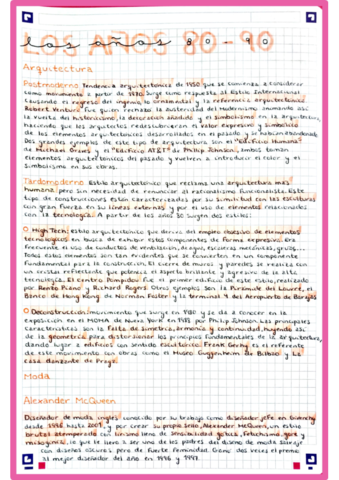 LOS AÑOS 80-90
los años 80-90
Arquitectura
Postmoderno Tendencia arquitectónica de 1950 que se comienza a considerar
como movimiento a partir de 1970. Surge como respuesta al Estilo Internacional
causando el regreso del ingenio, lo ornamental y la referencia arquitectónica.
Robert Venturi fue quien rechazó la austeridad del modernismo animando así
la vuelta del historicismo, la decoración añadida y el simbolismo en la arquitectura,
haciendo que los arquitectos redescubriesen el valor expresivo y simbólico
de los elementos arquitectónicos desarrollados en el pasado y se habían abandonado.
Dos grandes ejemplos de este tipo de arquitectura son el "Edificio Humana"
de Michael Graves y el "Edificio AT&T" de Philip Johnson, ambos toman
elementos arquitectónicos del pasado y vuelven a introducir el color y el
simbolismo en sus obras.
Tardomoderno Estilo arquitectónico que reclama una arquitectura más
humana pero sin necesidad de renunciar al racionalismo funcionalista. Este
tipo de construcciones están caracterizadas por su similitud con las esculturas
con gran fuerza en sus líneas externas y por el uso de elementos relacionados
con la tecnología. A partir de los años 80 surgen dos estilos:
High Tech: estilo arquitectónico que deriva del empleo obsesivo de elementos
tecnológicos en busca de exhibir estos componentes de forma expresiva. Era
frecuente el uso de conductos de ventilación, de agua, escaleras mecánicas, grúas...
Todos estos elementos son tan evidentes que se convierten en un componente
fundamental para la construcción. El cierre de muros y paredes se realiza con
un cristal reflectante que potencia el aspecto brillante y agresivo de la alta
tecnología. El centro Pompidou fue el primer edificio de este estilo, realizado
por Renzo Piano y Richard Rogers. Otros ejemplos son la Pirámide del Louvre, el
Banco de Hong Kong de Norman Foster y la terminal 4 del Aeropuerto de Barajas
Deconstrucción: movimiento que surge en 1980 y se da a conocer en la
exposición en el MOMA de Nueva York en 1988 por Philip Johnson. Las principales
características son la falta de simetría, armonía y continuidad, huyendo así
de la geometría para distorsionar los principios fundamentales de la arquitectura,
dando lugar a edificios con sentido escultórico. Frank Gehry es el referente
de este movimiento con obras como el Museo Guggenheim de Bilbao y La
casa danzante de Praga.
Moda
Alexander McQueen
Diseñador de moda inglés conocido por su trabajo como diseñador jefe en Givenchy
desde 1996 hasta 2001, y por crear su propio sello, Alexander McQueen, un estilo
brutal atemperado con lirismo lleno de sensibilidad gótica, fetichismo, gore y
misoginia, lo que le llevó a ser uno de los padres del diseño de moda salvaje
con diseños oscuros pero de fuerte feminidad. Ganó dos veces el premio
al mejor diseñador del año en 1996 y 1997.